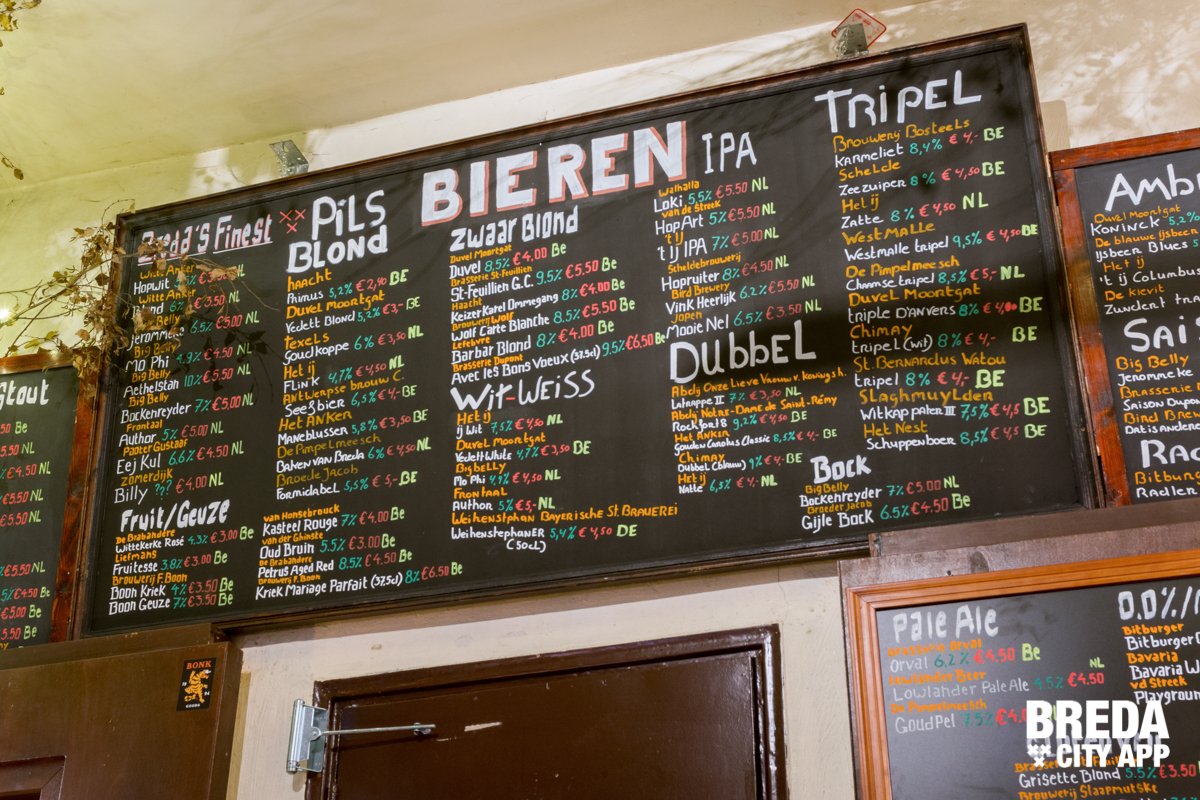 Stout
5% Be
5.50 NL
€4.50 NL
€5.50 NL
5.50 NL
€5.50 NL
5% €4.50 Be
€5.00 Be
5.50 Be
BIEREN
Breda's Finest xxx
Witte Anker
Hopwit NL
Witte Anker
Blond 6% €3.50 NL
6.5% €5.00 NL
Jeromme
Big Belly
Mo Phi 4.9% €4.50 NL
Big Belly
Aethelstan 10% €5.50 NL
Big Belly
Bockenreyder 7% €5.00 NL
Frontaal
Author 5% €5.00 NL
Paater Gustaaf
Eej Kul 6.6% €4.50 NL
Zomerdijk
Billy ?? €4.00 NL
Fruit/Geuze
De Brabandere
Wittekerke Rosé 4.3% €3.00 Be
Liefmans
Fruitesse 3.8% €3.00 Be
Brouwerij F. Boon
Boon Kriek 4% €3.50 Be
Boon Geuze 7% €3.50 Be
PILS
BLOND
haacht
Primus 5,2% €2,40 BE
Duvel Moortgat
Vedett Blond 5,2% €3,- BE
texels
Goudkoppe 6% €3,50 NL
Het ij
Flink 4,7% €4,50 NL
Antwerpse brouw C.
Seef bier 6,5% €4,- BE
Het Anker
Maneblusser 5,8% €3,50 BE
De Pimpelmeesch
Baken van Breda 6% €4,50 NL
Broede Jacob
Formidabel 5,5% €5,- BE
van Honsebrouck
Kasteel Rouge 7% €4.00 Be
van der Ghinste
Oud Bruin 5.5% €3.00 Be
De Brabandere
Petrus Aged Red 8.5% €4.50 Be
Brouwerij F. Boon
Kriek Mariage Parfait (37.5cl) 8% €6.50 Be
Zwaar Blond
Duvel Moortgat
Duvel 8,5% €4.00 Be
Brasserie St-Feuillien
St-Feuillien G.C. 9.5% €5.50 Be
Haacht
Keizer Karel Ommegang 8% €4.00 Be
Brouwerij Wolf
Wolf Carte Blanche 8.5% €5.50 Be
Lefebvre
Barbar Blond 8% €4.00 Be
Brasserie Dupont
Avec les Bons Voeux (37.5cl) 9.5% €6.50 Be
Wit-Weiss
Het ij
Ij Wit 7,5% €4,50 NL
Duvel Moortgat
Vedett White 4,7% €3,50 BE
Big belly
Mo Phi 4,9% €4,50 NL
Frontaal
Author 5% €5,- NL
Weihenstphan Bayerische St. Brauerei
Weihenstephaner 5,4% €4,50 DE
(50cl)
IPA
Walhalla
Loki 5,5% €5.50 NL
van de Streek
Hop Art 5% €5.50 NL
't ij
't IJ IPA 7% €5.00 NL
Scheldebrouwerij
Hopruiter 8% €4.50 NL
Bird Brewery
Vink Heerlijk 6.2% €5.50 NL
Jopen
Mooie Nel 6,5% €3.50 NL
Dubbel
Abdij Onze Lieve Vrouw v. Koningsh.
Latrappe II 7% €3,50 NL
Abdij Notre-Dame de Saint-Rémy
Rochfort 8 9,2% €4,50 BE
Het Anker
Gouden Carolus Classic 8,5% €4,- BE
Chimay
Dubbel (blauw) 9% €4,- BE
Het ij
Natte 6,5% €4,- NL
Tripel
Brouwerij Bosteels
Karmeliet 8,4% €4,- BE
Schelde
Zeezuiper 8% €4,50 BE
Het ij
Zatte 8% €4,50 NL
Westmalle
Westmalle tripel 9,5% €4,50 BE
De Pimpelmeesch
Chaamse tripel 8,5% €5,- NL
Duvel Moontgat
triple D'Anvers 8% €4,00 BE
Chimay
tripel (wit) 8% €4,- BE
St. Bernardus Watou
tripel 8% €4,- BE
Slaghmuylder
Witkap pater III 7,5% €4,5 BE
Het Nest
Schuppenboer 8,5% €4,5 BE
Bock
Big Belly
Bockenreyder 7% €5.00 NL
Broeder Jacob
Gijle Bock 6.5% €4.50 Be
Amb
Duvel Moortgat
Koninck 5,2%
De blauwe ijsbeer
Ijsbeer Blues
Het ij
't ij Columbus
De kievit
Zundert tra
SAIS
Big Belly
Jeromneke
Brasserie
Saison Dupon
Bird Brew
Dat is andere
Ra
Bitburg
Radler
BONK
Pale Ale
Brasserie Orval
Orval 6.2% €4.50 Be
Lowlander Beer NL
Lowlander Pale Ale 4.5% €4.50
De Pimpelmeesch
Goudpel 7.5%
0.0%/
Bitburger
Bitburger
Bavaria
Bavaria W
vd Streek
Playground
Grisette Blond 5.5% €3.50
Brouwerij Slaapmutske
BREDA
CITY APP